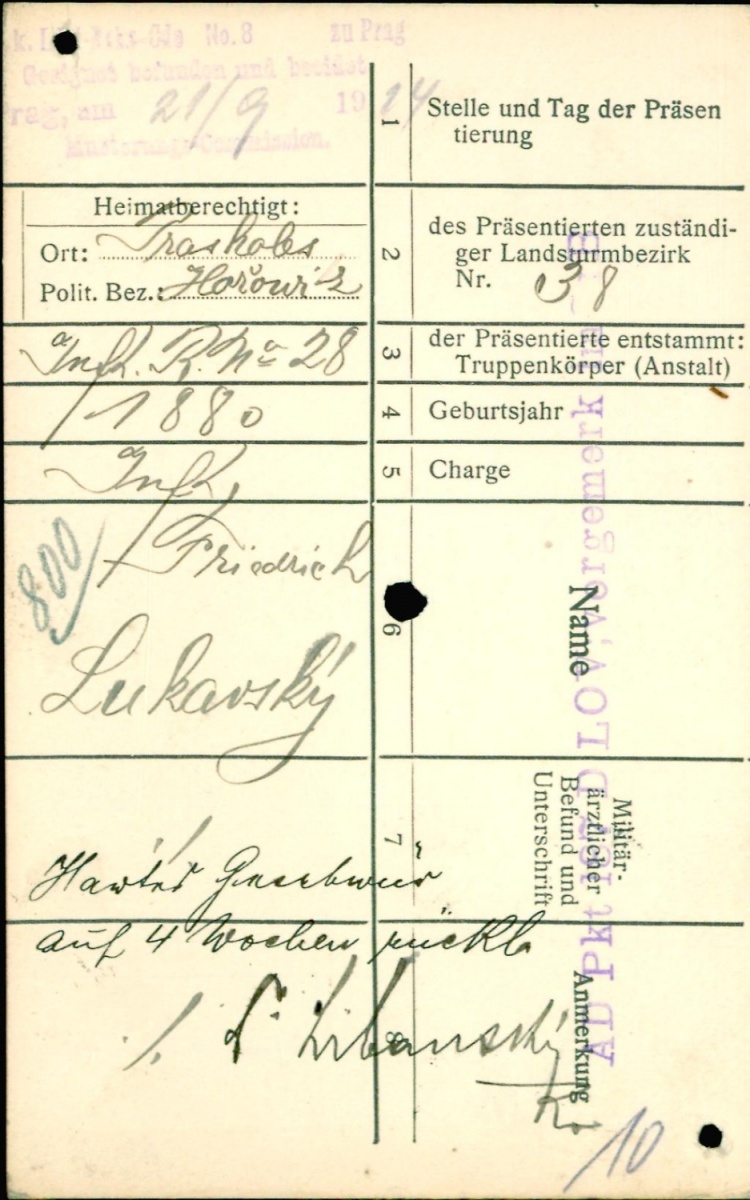 No. 8 zu Prag
Geeignet befunden und beeidet
Prag, am 21/9 1914
Musterungs-Commission.
1 Stelle und Tag der Präsen
tierung
Heimatberechtigt:
Ort: Praskoles
Polit. Bez.: Hořowiz
2 des Präsentierten zuständi-
ger Landsturmbezirk
Nr. 38
Inft. R. No 28
3 der Präsentierte entstammt:
Truppenkörper (Anstalt)
1880
4 Geburtsjahr
Inft.
5 Charge
800
Friedrich
Lukavský
6 Name
7 Militär-
ärztlicher
Befund und
Unterschrift
Hartes Geschwür
auf 4 Wochen rückb
8 Anmerkung
10